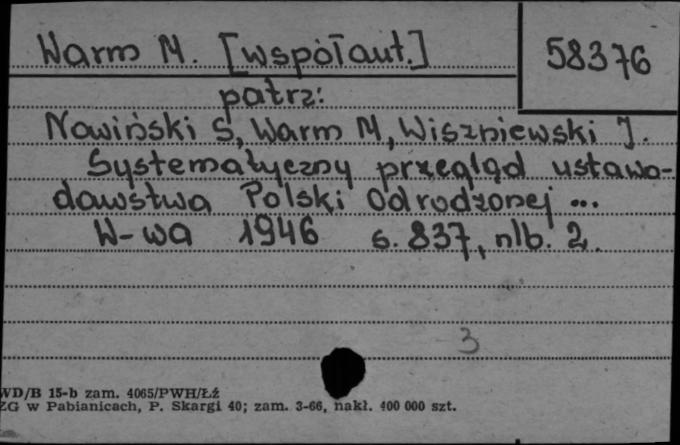 Warm M. [współaut.]
58376
patrz:
Nowiński S, Warm M, Wiszniewski J.
Systematyczny przegląd ustawo-
dawstwa Polski Odrodzonej ...
W-wa 1946 s. 837, nlb. 2.
3
WD/B 15-b zam. 4065/PWH/Łź
ZG w Pabianicach, P. Skargi 40; zam. 3-66, nakł. 400 000 szt.